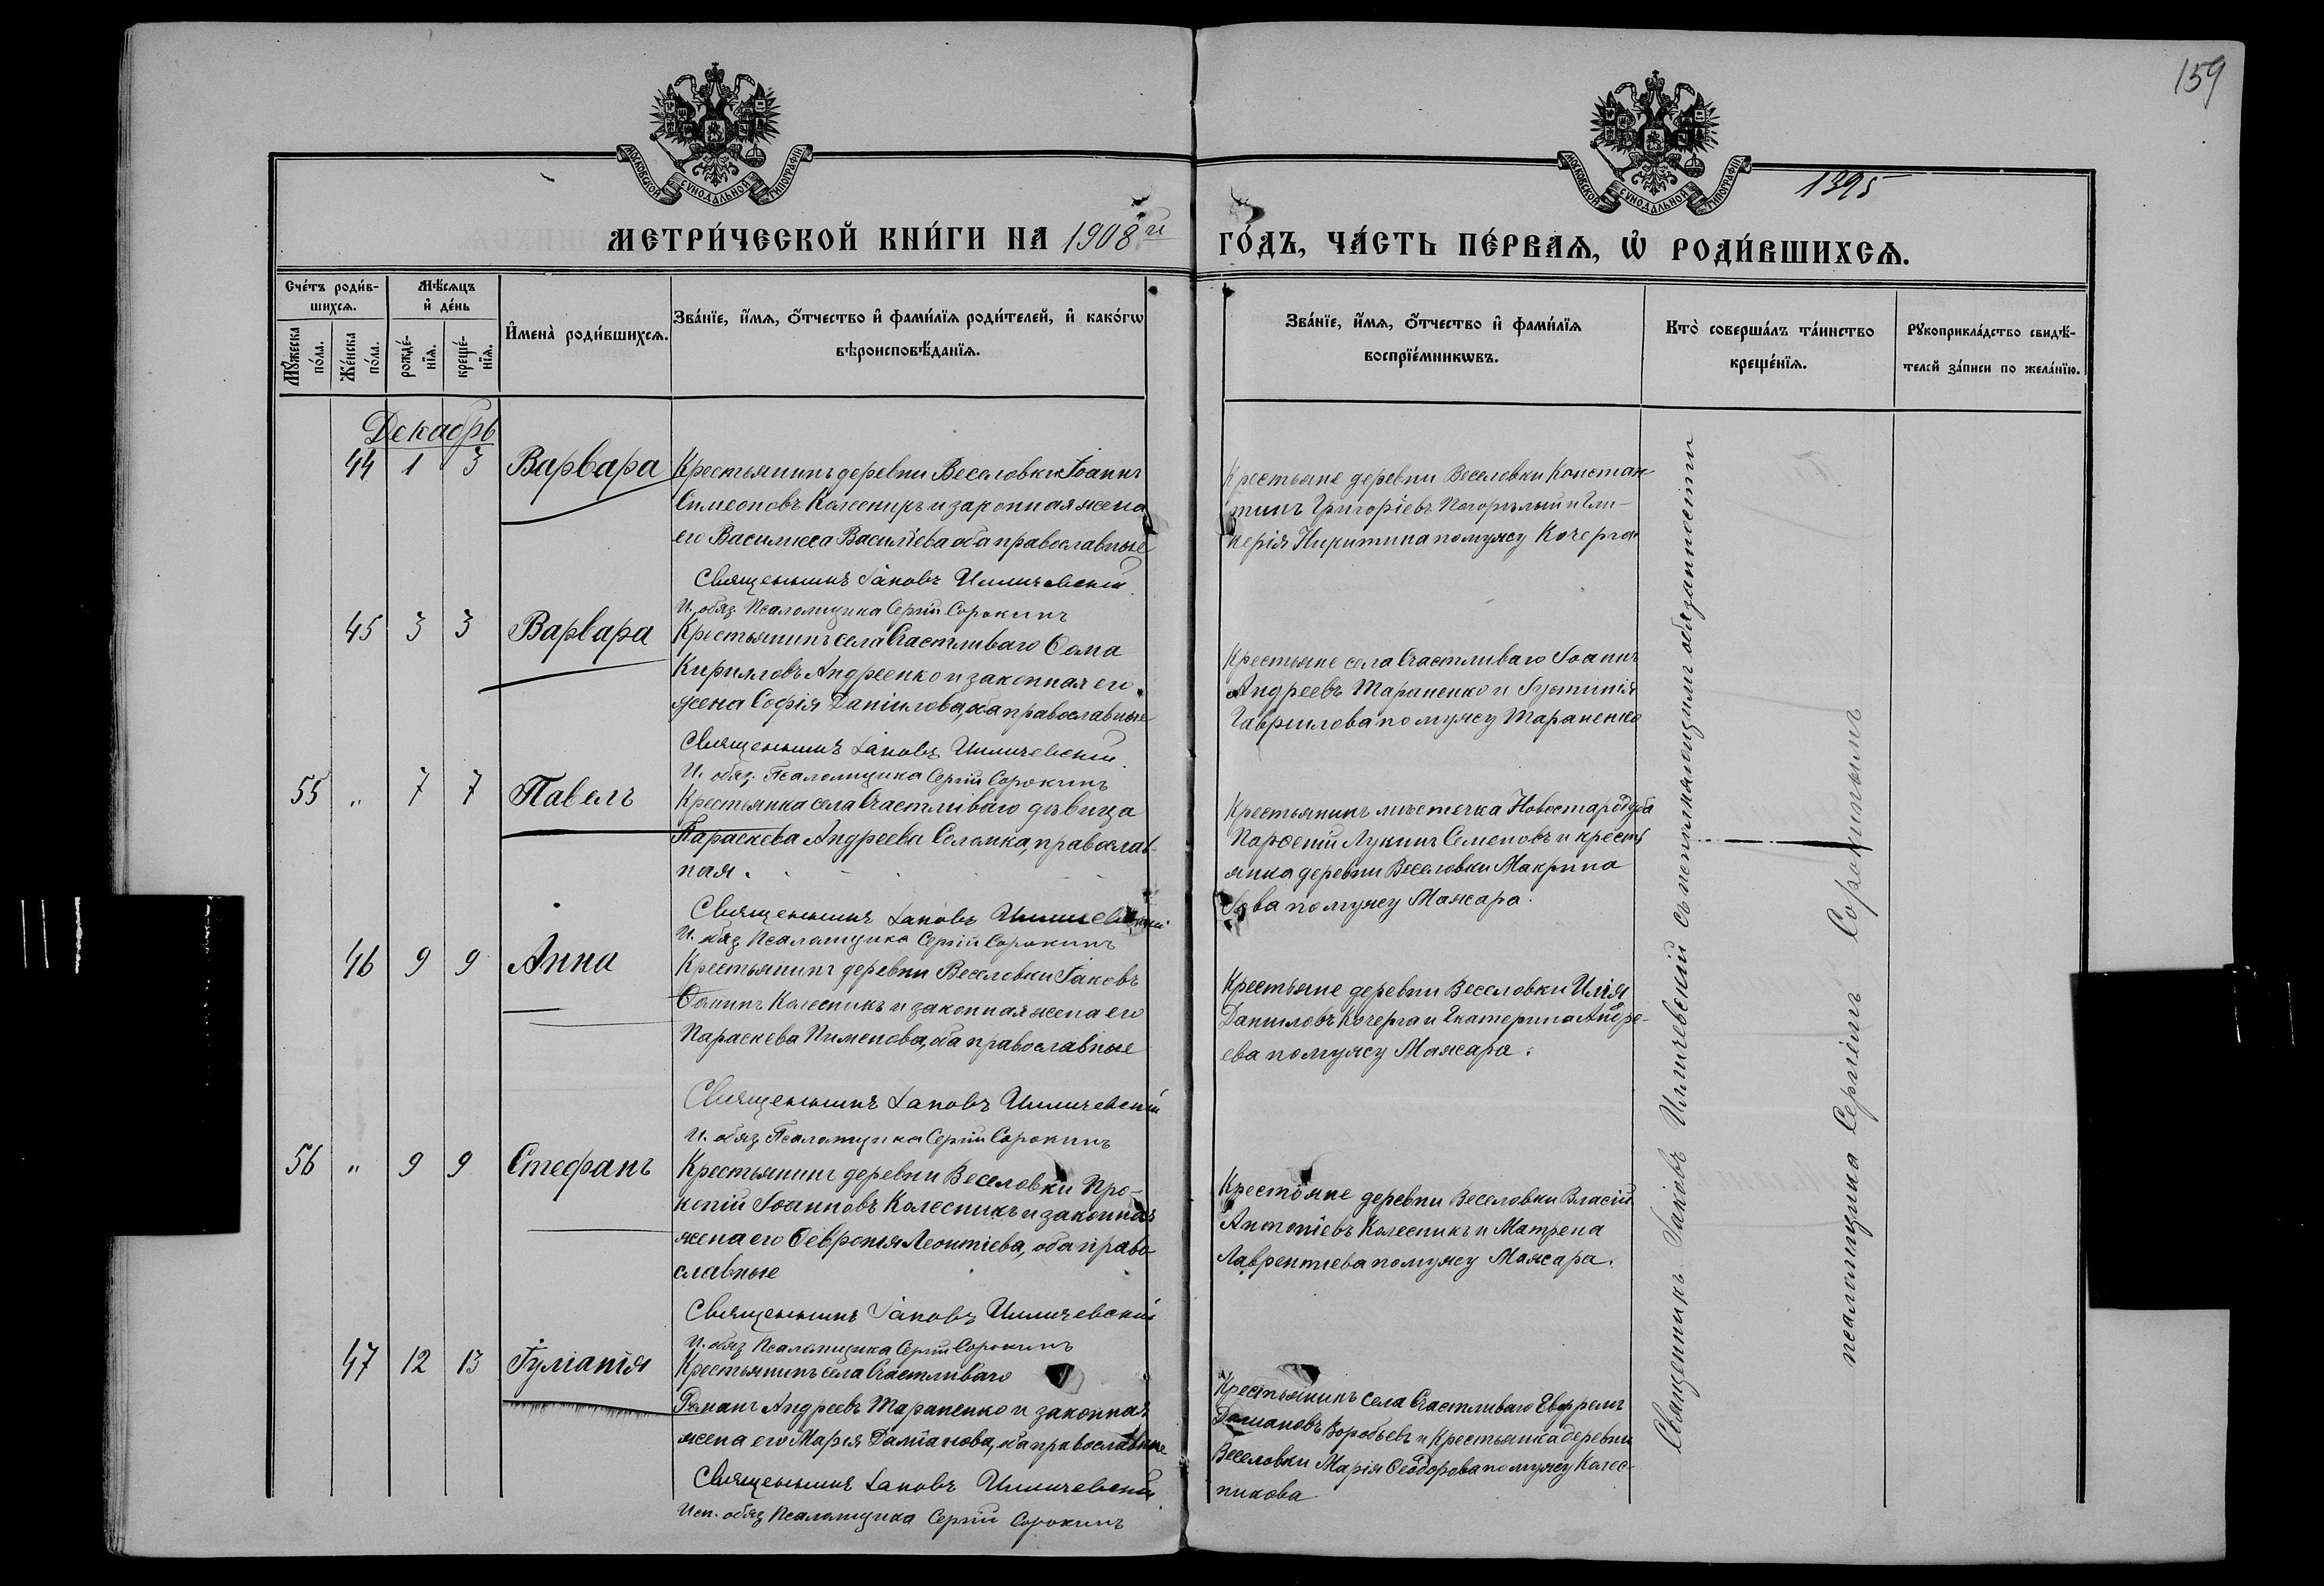 159
МОСКОВСКОЙ СУНОДАЛЬНОЙ ТИПОГРАФІИ
МОСКОВСКОЙ СУНОДАЛЬНОЙ ТИПОГРАФІИ
1395
МЕТРИ́ЧЕСКОЙ КНИ́ГИ НА 1908й
ГО́ДЪ, ЧА́СТЬ ПЕ́РВАѦ, Ѡ РОДИ́ВШИХСѦ.
Сче́тъ роди́в-
шихсѧ.
Мѣ́сѧцъ
и҆ де́нь
Мꙋ́жеска
по́ла.
Же́нска
по́ла.
рожде́-
нїѧ.
креще́-
нїѧ.
И҆мена̀ роди́вшихсѧ.
Зва́нїе, и҆́мѧ, ѻ҆́тчество и҆ фами́лїѧ роди́телей, и҆ како́гѡ
вѣроисповѣ́данїѧ.
Зва́нїе, и҆́мѧ, ѻ҆́тчество и҆ фами́лїѧ
воспрїе́мникѡвъ.
Кто̀ соверша́лъ та́инство
креще́нїѧ.
Рꙋкоприкла́дство свидѣ́-
телей за́писи по жела́нїю.
Декабрь
44 1 3 Варвара
Крестьянинъ деревни Веселовки Іоаннъ
Симеоновъ Колесникъ и законная жена
его Василисса Васильева оба православные
Священникъ Іаковъ Илличевскій
И. обяз. Псаломщика Сергій Сорокинъ
Крестьяне деревни Веселовки Констан-
тинъ Григоріевъ Погорѣлый и Гли-
керія Никитина по мужу Кочерга
45 3 3 Варвара
Крестьянинъ села Счастливаго Ѳома
Кирилловъ Андреенко и законная его
жена Софія Даніилова, оба православные
Священникъ Іаковъ Илличевскій
И. обяз. Псаломщика Сергій Сорокинъ
Крестьяне села Счастливаго Іоаннъ
Андреевъ Тараненко и Іустинія
Гавриилова по мужу Тараненко
55 " 7 7 Павелъ
Крестьянка села Счастливаго дѣвица
Параскева Андреева Соломка, православ-
ная.
Священникъ Іаковъ Илличевскій
И. обяз. Псаломщика Сергій Сорокинъ
Крестьянинъ мѣстечка Новостародуба
Парѳеній Лукинъ Семеновъ и крестья
янка деревни Веселовки Макрина
по мужу Мажара.
46 9 9 Анна
Крестьянинъ деревни Веселовки Іаковъ
Ѳоминъ Колесникъ и законная жена его
Параскева Пименова, оба православные
Священникъ Іаковъ Илличевскій
И. обяз. Псаломщика Сергій Сорокинъ
Крестьяне деревни Веселовки Илія
Даниловъ Кочерга и Екатерина Андре-
ева по мужу Мажара.
56 " 9 9 Стефанъ
Крестьянинъ деревни Веселовки Про-
копій Іоанновъ Колесникъ и законная
жена его Ѳевронія Леонтіева, оба право-
славные
Священникъ Іаковъ Илличевскій
И. обяз. Псаломщика Сергій Сорокинъ
Крестьяне деревни Веселовки Власій
Антоніевъ Колесникъ и Матрена
Лаврентіева по мужу Мажара.
47 12 13 Іуліанія
Крестьянинъ села Счастливаго
Романъ Андреевъ Тараненко и законная
жена его Марія Даміанова, оба православные
Священникъ Іаковъ Илличевскій
Исп. обяз. Псаломщика Сергій Сорокинъ
Крестьянинъ села Счастливаго Евфремъ
Даміановъ Воробьевъ и крестьянка деревни
Веселовки Марія Ѳеодорова по мужу Колес-
никова
Священникъ Іаковъ Илличевскій съ исполняющимъ обязанности
псаломщика Сергіемъ Сорокинымъ